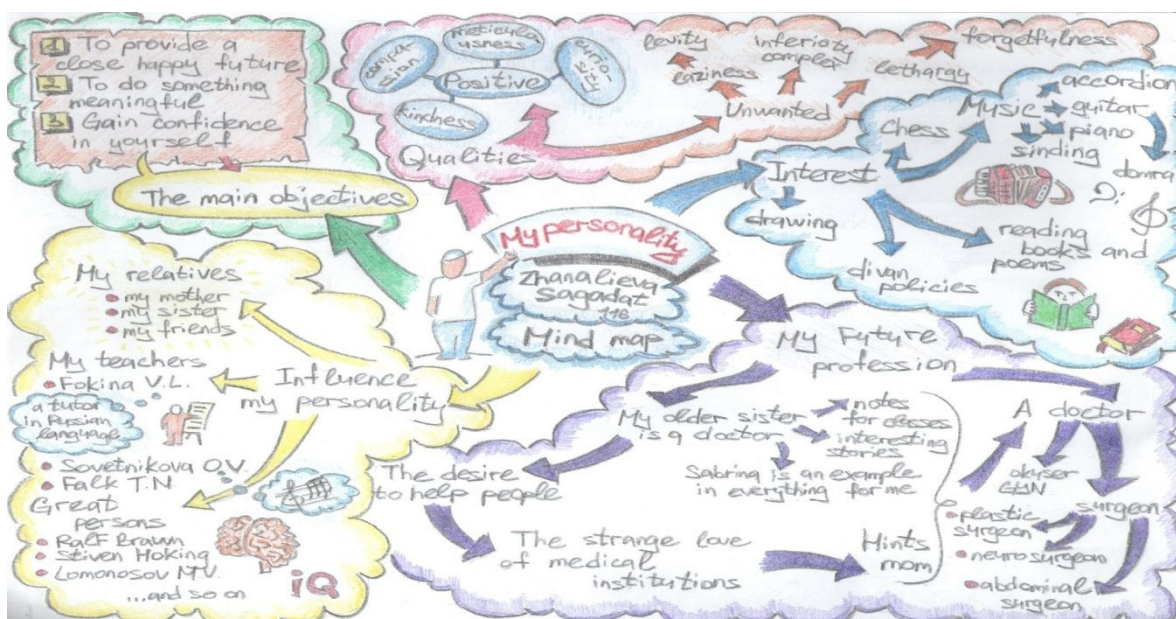 1 To provide a
close happy future
2 To do something
meaningful
3 Gain confidence
in yourself
The main objectives
meticulo-
usness
compa-
ssion
curio-
sity
Positive
kindness
Qualities
levity
laziness
inferiaty
complex
lethargy
forgetfulness
Unwanted
Interest
Chess
Music
accordion
guitar
piano
sinding
domra
drawing
divan
policies
reading
books and
poems
My personality
Zhanalieva
Sagadat
116
Mind map
My relatives
my mother
my sister
my friends
My teachers
Fokina V.L.
a tutor
in Russian
language
Sovetnikova O.V.
Falk T.N
Great
persons
Ralf Brawn
Stiven Hoking
Lomonosov M.V.
...and so on
iQ
Influence
my personality
My Future
profession
My older sister
is a doctor
notes
for classes
interesting
stories
Sabrina is an example
in everything for me
The desire
to help people
The strange love
of medical
institutions
Hints
mom
A doctor
surgeon
plastic
surgeon
neurosurgeon
abdominal
surgeon